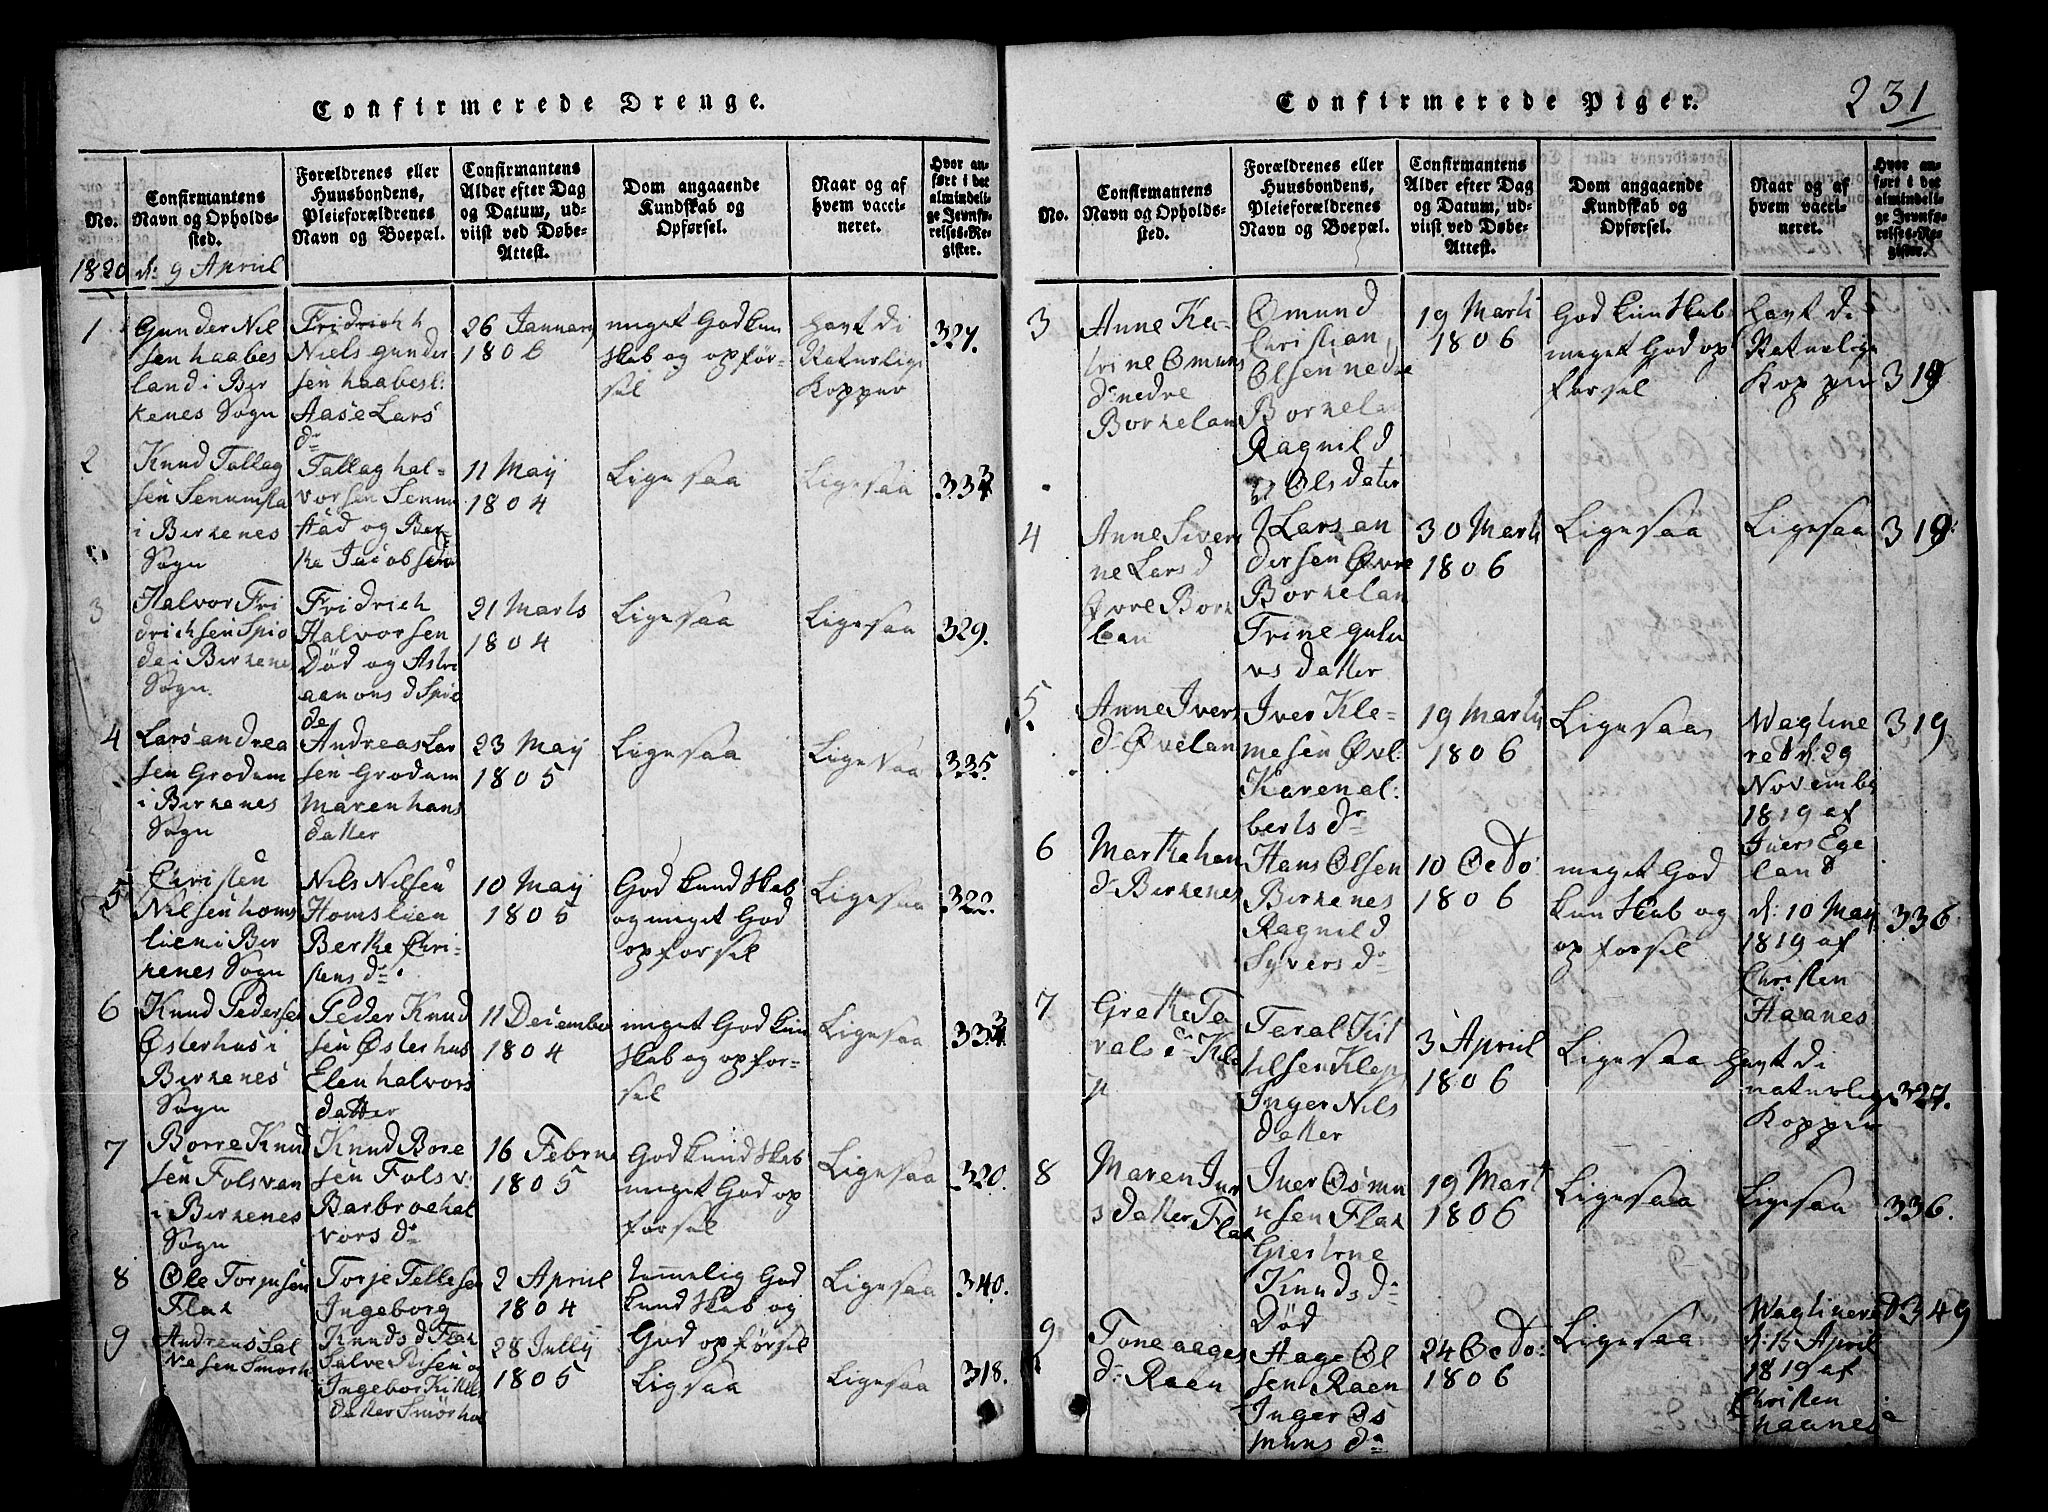 Confirmerede Drenge.
No.
Confirmantens
Navn og Opholds-
sted.
Forældrenes eller
Huusbondens,
Pleieforældrenes
Navn og Boepæl.
Confirmantens
Alder efter Dag
og Datum, ud-
viist ved Døbe-
Attest.
Dom angaaende
Kundskab og
Opførsel.
Naar og af
hvem vacci-
neret.
Hvor an-
ført i det
almindeli-
ge Jevnfø-
relses-Re-
gister.
1820 d: 9 Apriil
1
Gunder Nil
sen haabes
land i Bir
kenes Sogn
Fridrich h
Niels gunder
sen haabesl:
Aase Lars
dr
26 January
1806
meget God kun
skab og opfør-
sel
havt di
Naturlige
Kopper
327.
2
Knud Tallag
sen Senumsta
i Birkenes
Sogn
Tallag hal-
vorsen Senum
stad og Ber-
the Jacobsen
11 May
1804
Ligesaa
Ligesaa
3
Halvor Fri
drichsen Spio
de i Birkene
Sogn
Fridrich
Halvorsen
Død og Astri
aanons d Spio
de
21 Marts
1804
Ligesaa
Ligesaa
329.
4
Lars andrea
sen Grodum
i Birkenes
Sogn
Andreas Lar
sen Grodum
Maren hans
datter
23 May
1805
Ligesaa
Ligesaa
335.
5
Christen
Nilsen homs
lien i Bir
kenes Sogn
Nils Nilsen
Homslien
Berthe Chri-
stens dr
10 May
1805
God kundskab
og meget God
opforsel
Ligesaa
322.
6
Knud Pedersen
Østerhus i
Birkenes
Sogn
Peder Knud
sen Østerhus
Elen halvors
datter
11 December
1804
meget God kun
skab og opfor-
sel
Ligesaa
7
Borre Knud
sen Folsvan
i Birkenes
Sogn
Knud Bore
sen Folsv:
Barbroe hal
vors dr
16 Februa
1805
God kundskab
meget God op
forsel
Ligesaa
320.
8
Ole Torjusen
Flax
Torje Tellesen
Ingeborg
Knuds d Flak
2 Apriil
1804
temmelig God
kundskab og
God opførsel
Ligesaa
340.
9
Andreas Sal
vesen Smorh
Salve Persen og
Ingebor Kittels
datter Smørhol
28 Jully
1805
Ligsaa
Ligesaa
318.
Confirmerede Piger.
231
No.
Confirmantens
Navn og Opholds-
sted.
Forældrenes eller
Huusbondens,
Pleieforældrenes
Navn og Boepæl.
Confirmantens
Alder efter Dag
og Datum, ud-
viist ved Døbe-
Attest.
Dom angaaende
Kundskab og
Opførsel.
Naar og af
hvem vacci-
neret.
Hvor an-
ført i det
almindeli-
ge Jevnfø-
relses-Re-
gister.
3
Anne Ka-
trine Omuns
dr nedre
Borkelan
Omund
Christian
Olsen nedre
Borkelan
Ragnild
Olsdater
19 Marti
1806
God kunskab
meget God op
forsel
havt di
Naturlige
Kopper
319
4
Anne Siver
ne Lars d
Øvre Bork
lan
Lars an
dersen Øvre
Borkelan
Trine gulu
vs datter
30 Marti
1806
Ligesaa
Ligesaa
319.
5.
Anne Ivers
dr Øvelan
Iver Kle-
mesen Øvl
Karen al:
berts dr
19 Martii
1806
Ligesaa
Wagtine
red d: 29
Novembe
1819 af
Juers Ege
land
319
6
Marthe han
dr Birkenes
Hans Olsen
Birkenes
Ragnild
Syvers dr
10 Octo:
1806
meget God
kunskab og
opforsel
d: 10 May
1819 af
Christen
Haanes
336
7
Grethe Ta
rals dr Kle
p
Taral Kit
tilsen Klep
Inger Nils
datter
3 Apriil
1806
Ligesaa
havt di
naturlige
Kopper
327.
8
Maren Iur
s datter Flak
Iuer Osmu
nsen Flak
Giertrue
Knuds dr
Død
19 Mart
1806
Ligesaa
Ligesaa
336.
9
Tone aages
dr Raen
Aage Ol
sen Raen
Inger Os
muns da
24 Octo:
1806
Ligesaa
Wagtinered
d: 15 April
1819 af
Christen
Haanes
349